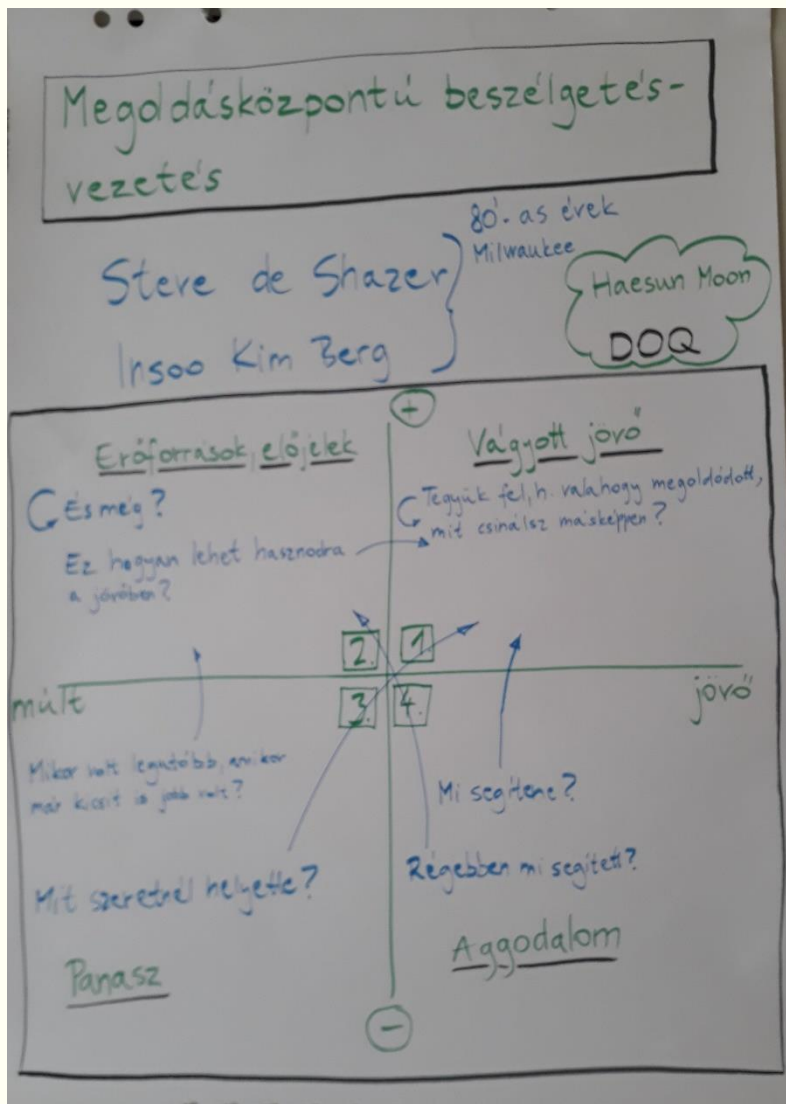 Megoldásközpontú beszélgetés-
vezetés
Steve de Shazer
Insoo Kim Berg
80'-as évek
Milwaukee
Haesun Moon
DOQ
+
Erőforrások, előjelek
És még?
Ez hogyan lehet hasznodra
a jövőben?
Vágyott jövő
Tegyük fel, h. valahogy megoldódott,
mit csinálsz másképpen?
2.
1.
3.
4.
múlt
jövő
Mikor volt legutóbb, amikor
már kicsit is jobb volt?
Mit szeretnél helyette?
Panasz
Mi segítene?
Régebben mi segített?
Aggodalom
-